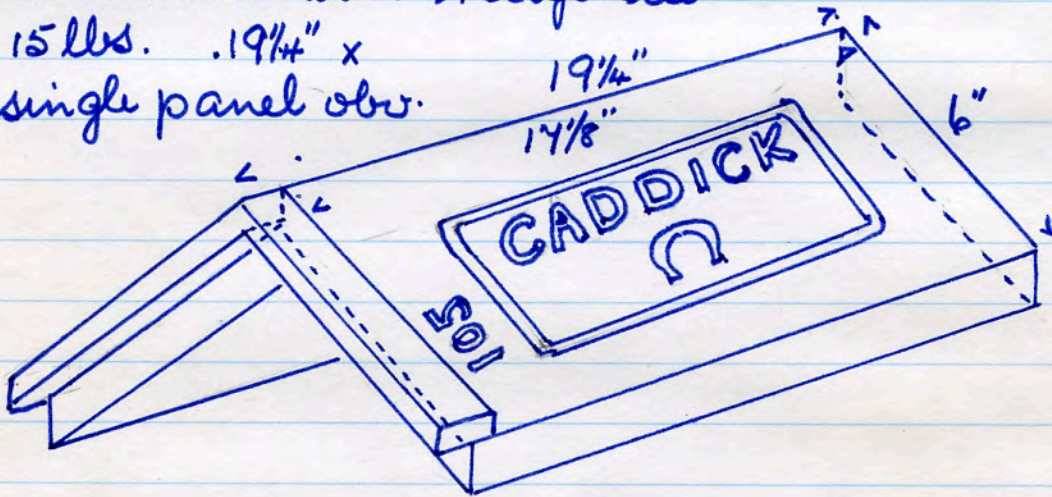 15 lbs. .19¼" x
single panel obv.
19¼"
17⅛"
6"
CADDICK
501